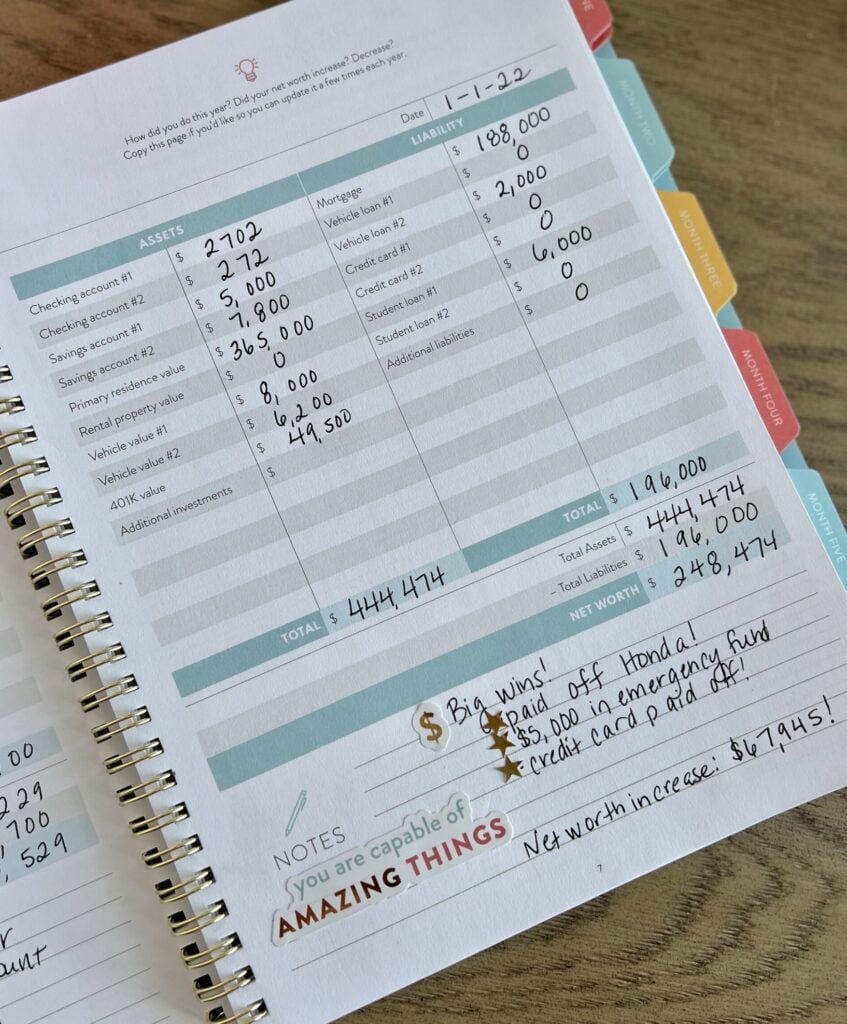 NE
MONTH TWO
MONTH THREE
MONTH FOUR
MONTH FIVE
How did you do this year? Did your net worth increase? Decrease?
Copy this page if you'd like so you can update it a few times each year.
Date 1-1-22
ASSETS
Checking account #1 $ 2702
Checking account #2 $ 272
Savings account #1 $ 5,000
Savings account #2 $ 7,800
Primary residence value $ 365,000
Rental property value $ 0
Vehicle value #1 $ 8,000
Vehicle value #2 $ 6,200
401K value $ 49,500
Additional investments $
TOTAL $ 444,474
LIABILITY
Mortgage $ 188,000
Vehicle loan #1 $ 0
Vehicle loan #2 $ 2,000
Credit card #1 $ 0
Credit card #2 $ 0
Student loan #1 $ 6,000
Student loan #2 $ 0
Additional liabilities $ 0
TOTAL $ 196,000
Total Assets $ 444,474
- Total Liabilities $ 196,000
NET WORTH $ 248,474
$ Big wins!
paid off Honda!
$5,000 in emergency fund
- credit card paid off!
NOTES
you are capable of
AMAZING THINGS
Net worth increase: $67,945!
7
00
229
,700
,529
r
ount